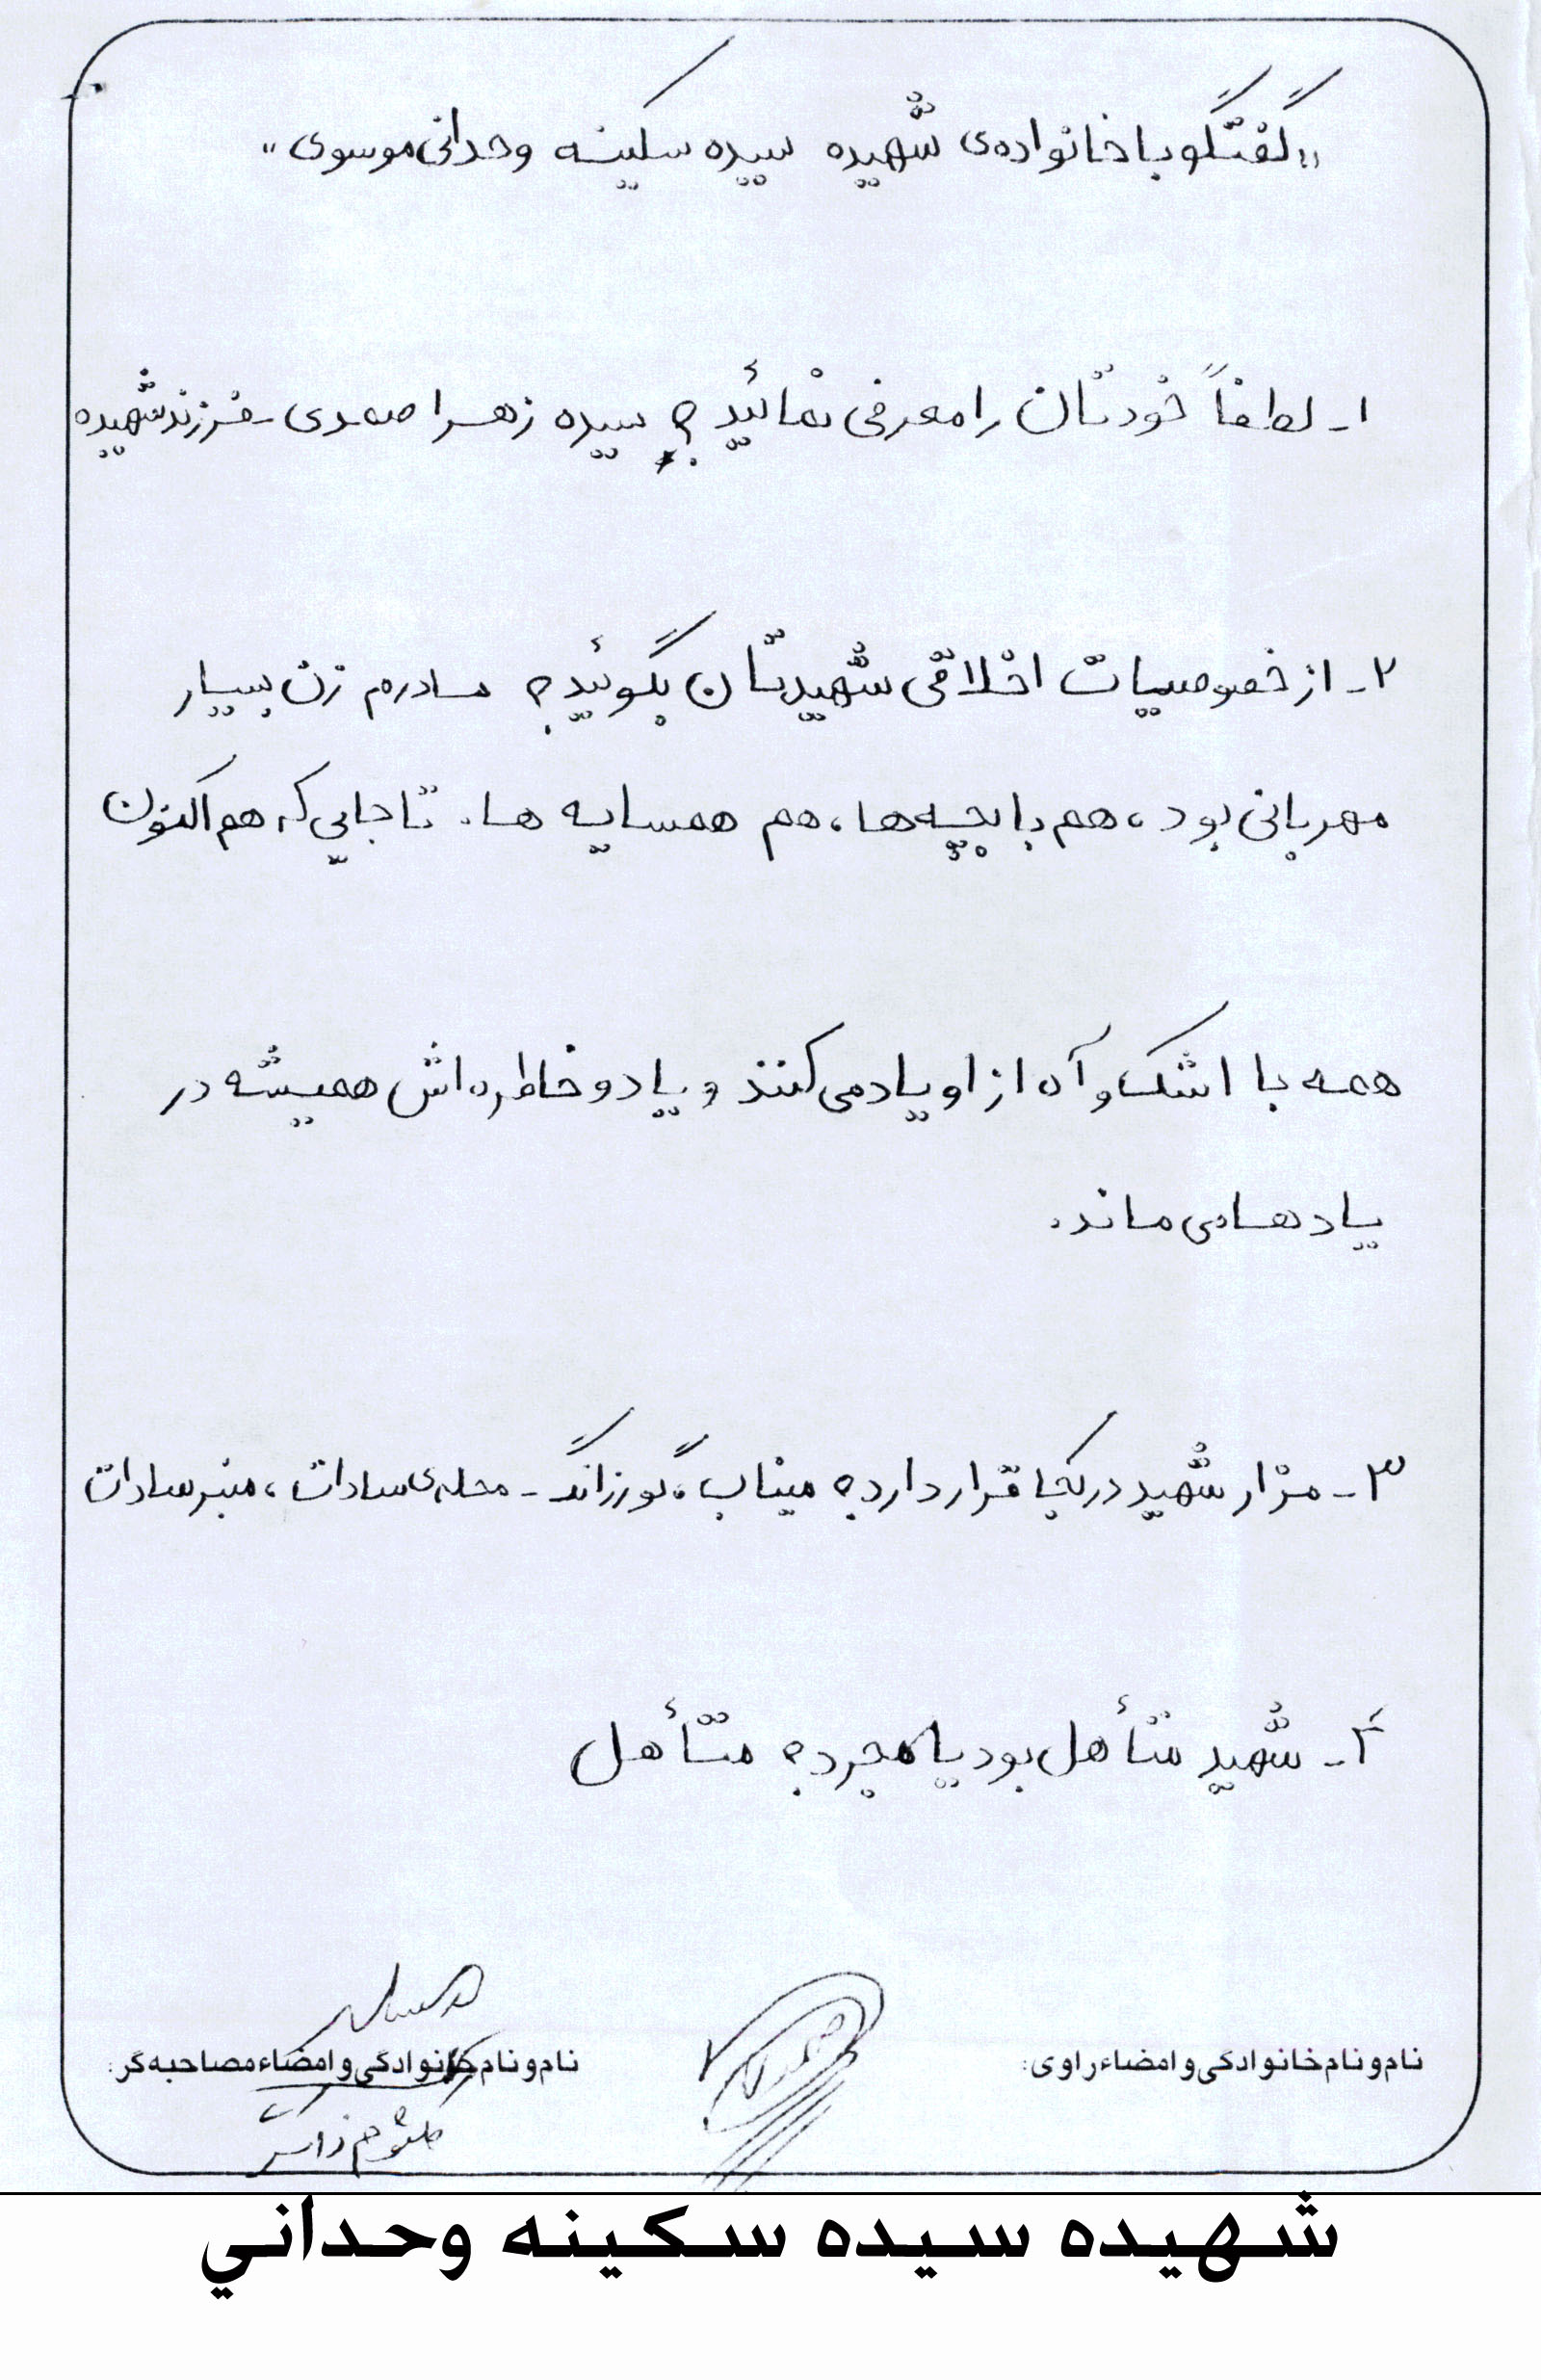 «گفتگو با خانواده‌ی شهیده سیده سکینه وحدانی موسوی»
۱- لطفاً خودتان را معرفی نمائید؟ سیده زهرا صمدی - فرزند شهیده
۲- از خصوصیات اخلاقی شهیدتان بگوئید؟ مادرم زن بسیار
مهربانی بود، هم با بچه‌ها، هم همسایه ها. تا جایی که هم اکنون
همه با اشک و آه از او یاد می‌کنند و یاد و خاطره‌اش همیشه در
یادها می‌ماند.
۳- مزار شهید در کجا قرار دارد؟ میناب، گورزانگ - محله‌ی سادات، منبر سادات
۴- شهید متأهل بود یا مجرد؟ متأهل
نام و نام خانوادگی و امضاء راوی:
نام و نام خانوادگی و امضاء مصاحبه‌گر:
شهیده سیده سکینه وحداني